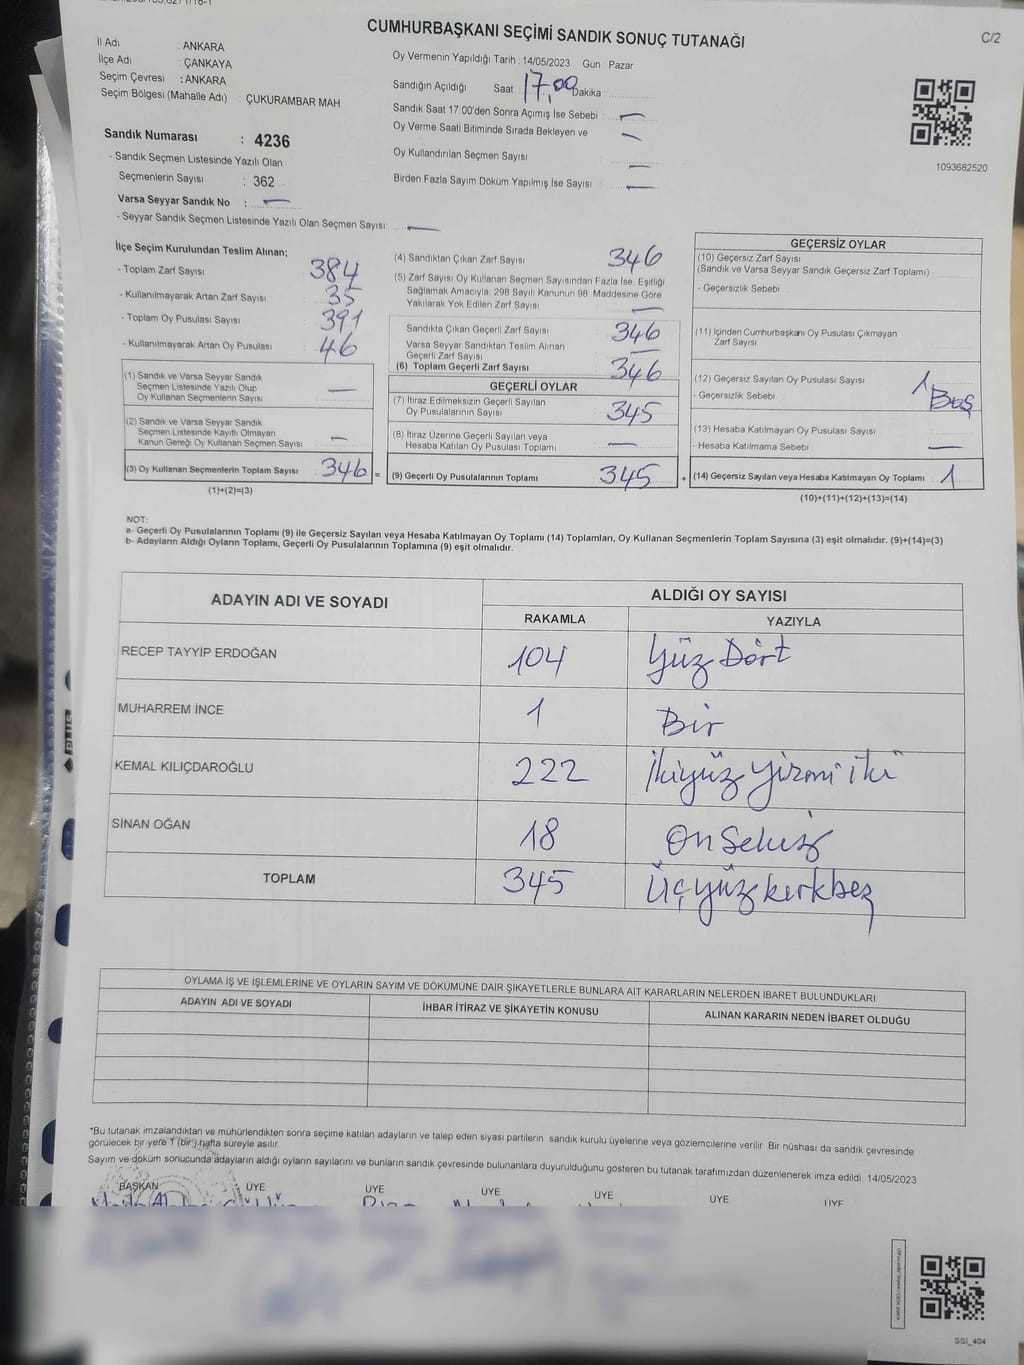 CUMHURBAŞKANI SEÇİMİ SANDIK SONUÇ TUTANAĞI
C/2
İl Adı : ANKARA
İlçe Adı : ÇANKAYA
Seçim Çevresi : ANKARA
Seçim Bölgesi (Mahalle Adı) : ÇUKURAMBAR MAH.
Sandık Numarası : 4236
- Sandık Seçmen Listesinde Yazılı Olan
Seçmenlerin Sayısı : 362
Varsa Seyyar Sandık No : —
- Seyyar Sandık Seçmen Listesinde Yazılı Olan Seçmen Sayısı: —
Oy Vermenin Yapıldığı Tarih : 14/05/2023 Gün Pazar
Sandığın Açıldığı Saat 17,00 Dakika :
Sandık Saat 17:00'den Sonra Açımış İse Sebebi : —
Oy Verme Saati Bitiminde Sırada Bekleyen ve —
Oy Kullandırılan Seçmen Sayısı —
Birden Fazla Sayım Döküm Yapılmış İse Sayısı : —
1093682520
İlçe Seçim Kurulundan Teslim Alınan;
- Toplam Zarf Sayısı 384
- Kullanılmayarak Artan Zarf Sayısı : 35
- Toplam Oy Pusulası Sayısı : 391
- Kullanılmayarak Artan Oy Pusulası : 46
(1) Sandık ve Varsa Seyyar Sandık
Seçmen Listesinde Yazılı Olup —
Oy Kullanan Seçmenlerin Sayısı
(2) Sandık ve Varsa Seyyar Sandık
Seçmen Listesinde Kayıtlı Olmayan —
Kanun Gereği Oy Kullanan Seçmen Sayısı
(3) Oy Kullanan Seçmenlerin Toplam Sayısı 346 =
(1)+(2)=(3)
(4) Sandıktan Çıkan Zarf Sayısı 346
(5) Zarf Sayısı Oy Kullanan Seçmen Sayısından Fazla İse, Eşitliği
Sağlamak Amacıyla, 298 Sayılı Kanunun 98. Maddesine Göre
Yakılarak Yok Edilen Zarf Sayısı —
Sandıkta Çıkan Geçerli Zarf Sayısı 346
Varsa Seyyar Sandıktan Teslim Alınan
Geçerli Zarf Sayısı —
(6) Toplam Geçerli Zarf Sayısı 346
GEÇERLİ OYLAR
(7) İtiraz Edilmeksizin Geçerli Sayılan
Oy Pusulalarının Sayısı 345
(8) İtiraz Üzerine Geçerli Sayılan veya
Hesaba Katılan Oy Pusulası Toplamı —
(9) Geçerli Oy Pusulalarının Toplamı 345 +
GEÇERSİZ OYLAR
(10) Geçersiz Zarf Sayısı
(Sandık ve Varsa Seyyar Sandık Geçersiz Zarf Toplamı)
- Geçersizlik Sebebi
(11) İçinden Cumhurbaşkanı Oy Pusulası Çıkmayan
Zarf Sayısı
(12) Geçersiz Sayılan Oy Pusulası Sayısı 1
- Geçersizlik Sebebi : Boş
(13) Hesaba Katılmayan Oy Pusulası Sayısı
- Hesaba Katılmama Sebebi : —
(14) Geçersiz Sayılan veya Hesaba Katılmayan Oy Toplamı : 1
(10)+(11)+(12)+(13)=(14)
NOT:
a- Geçerli Oy Pusulalarının Toplamı (9) ile Geçersiz Sayılan veya Hesaba Katılmayan Oy Toplamı (14) Toplamları, Oy Kullanan Seçmenlerin Toplam Sayısına (3) eşit olmalıdır. (9)+(14)=(3)
b- Adayların Aldığı Oyların Toplamı, Geçerli Oy Pusulalarının Toplamına (9) eşit olmalıdır.
ADAYIN ADI VE SOYADI
ALDIĞI OY SAYISI
RAKAMLA YAZIYLA
RECEP TAYYİP ERDOĞAN 104 Yüz Dört
MUHARREM İNCE 1 Bir
KEMAL KILIÇDAROĞLU 222 İkiyüz yirmi iki
SİNAN OĞAN 18 On Sekiz
TOPLAM 345 Üçyüzkırkbeş
OYLAMA İŞ VE İŞLEMLERİNE VE OYLARIN SAYIM VE DÖKÜMÜNE DAİR ŞİKAYETLERLE BUNLARA AİT KARARLARIN NELERDEN İBARET BULUNDUKLARI
ADAYIN ADI VE SOYADI
İHBAR İTİRAZ VE ŞİKAYETİN KONUSU
ALINAN KARARIN NEDEN İBARET OLDUĞU
*Bu tutanak imzalandıktan ve mühürlendikten sonra seçime katılan adayların ve talep eden siyasi partilerin sandık kurulu üyelerine veya gözlemcilerine verilir. Bir nüshası da sandık çevresinde
görülecek bir yere 1 (bir) hafta süreyle asılır.
Sayım ve döküm sonucunda adayların aldığı oyların sayılarını ve bunların sandık çevresinde bulunanlara duyurulduğunu gösteren bu tutanak tarafımızdan düzenlenerek imza edildi. 14/05/2023
BAŞKAN ÜYE ÜYE ÜYE ÜYE ÜYE ÜYE
SSİ_404